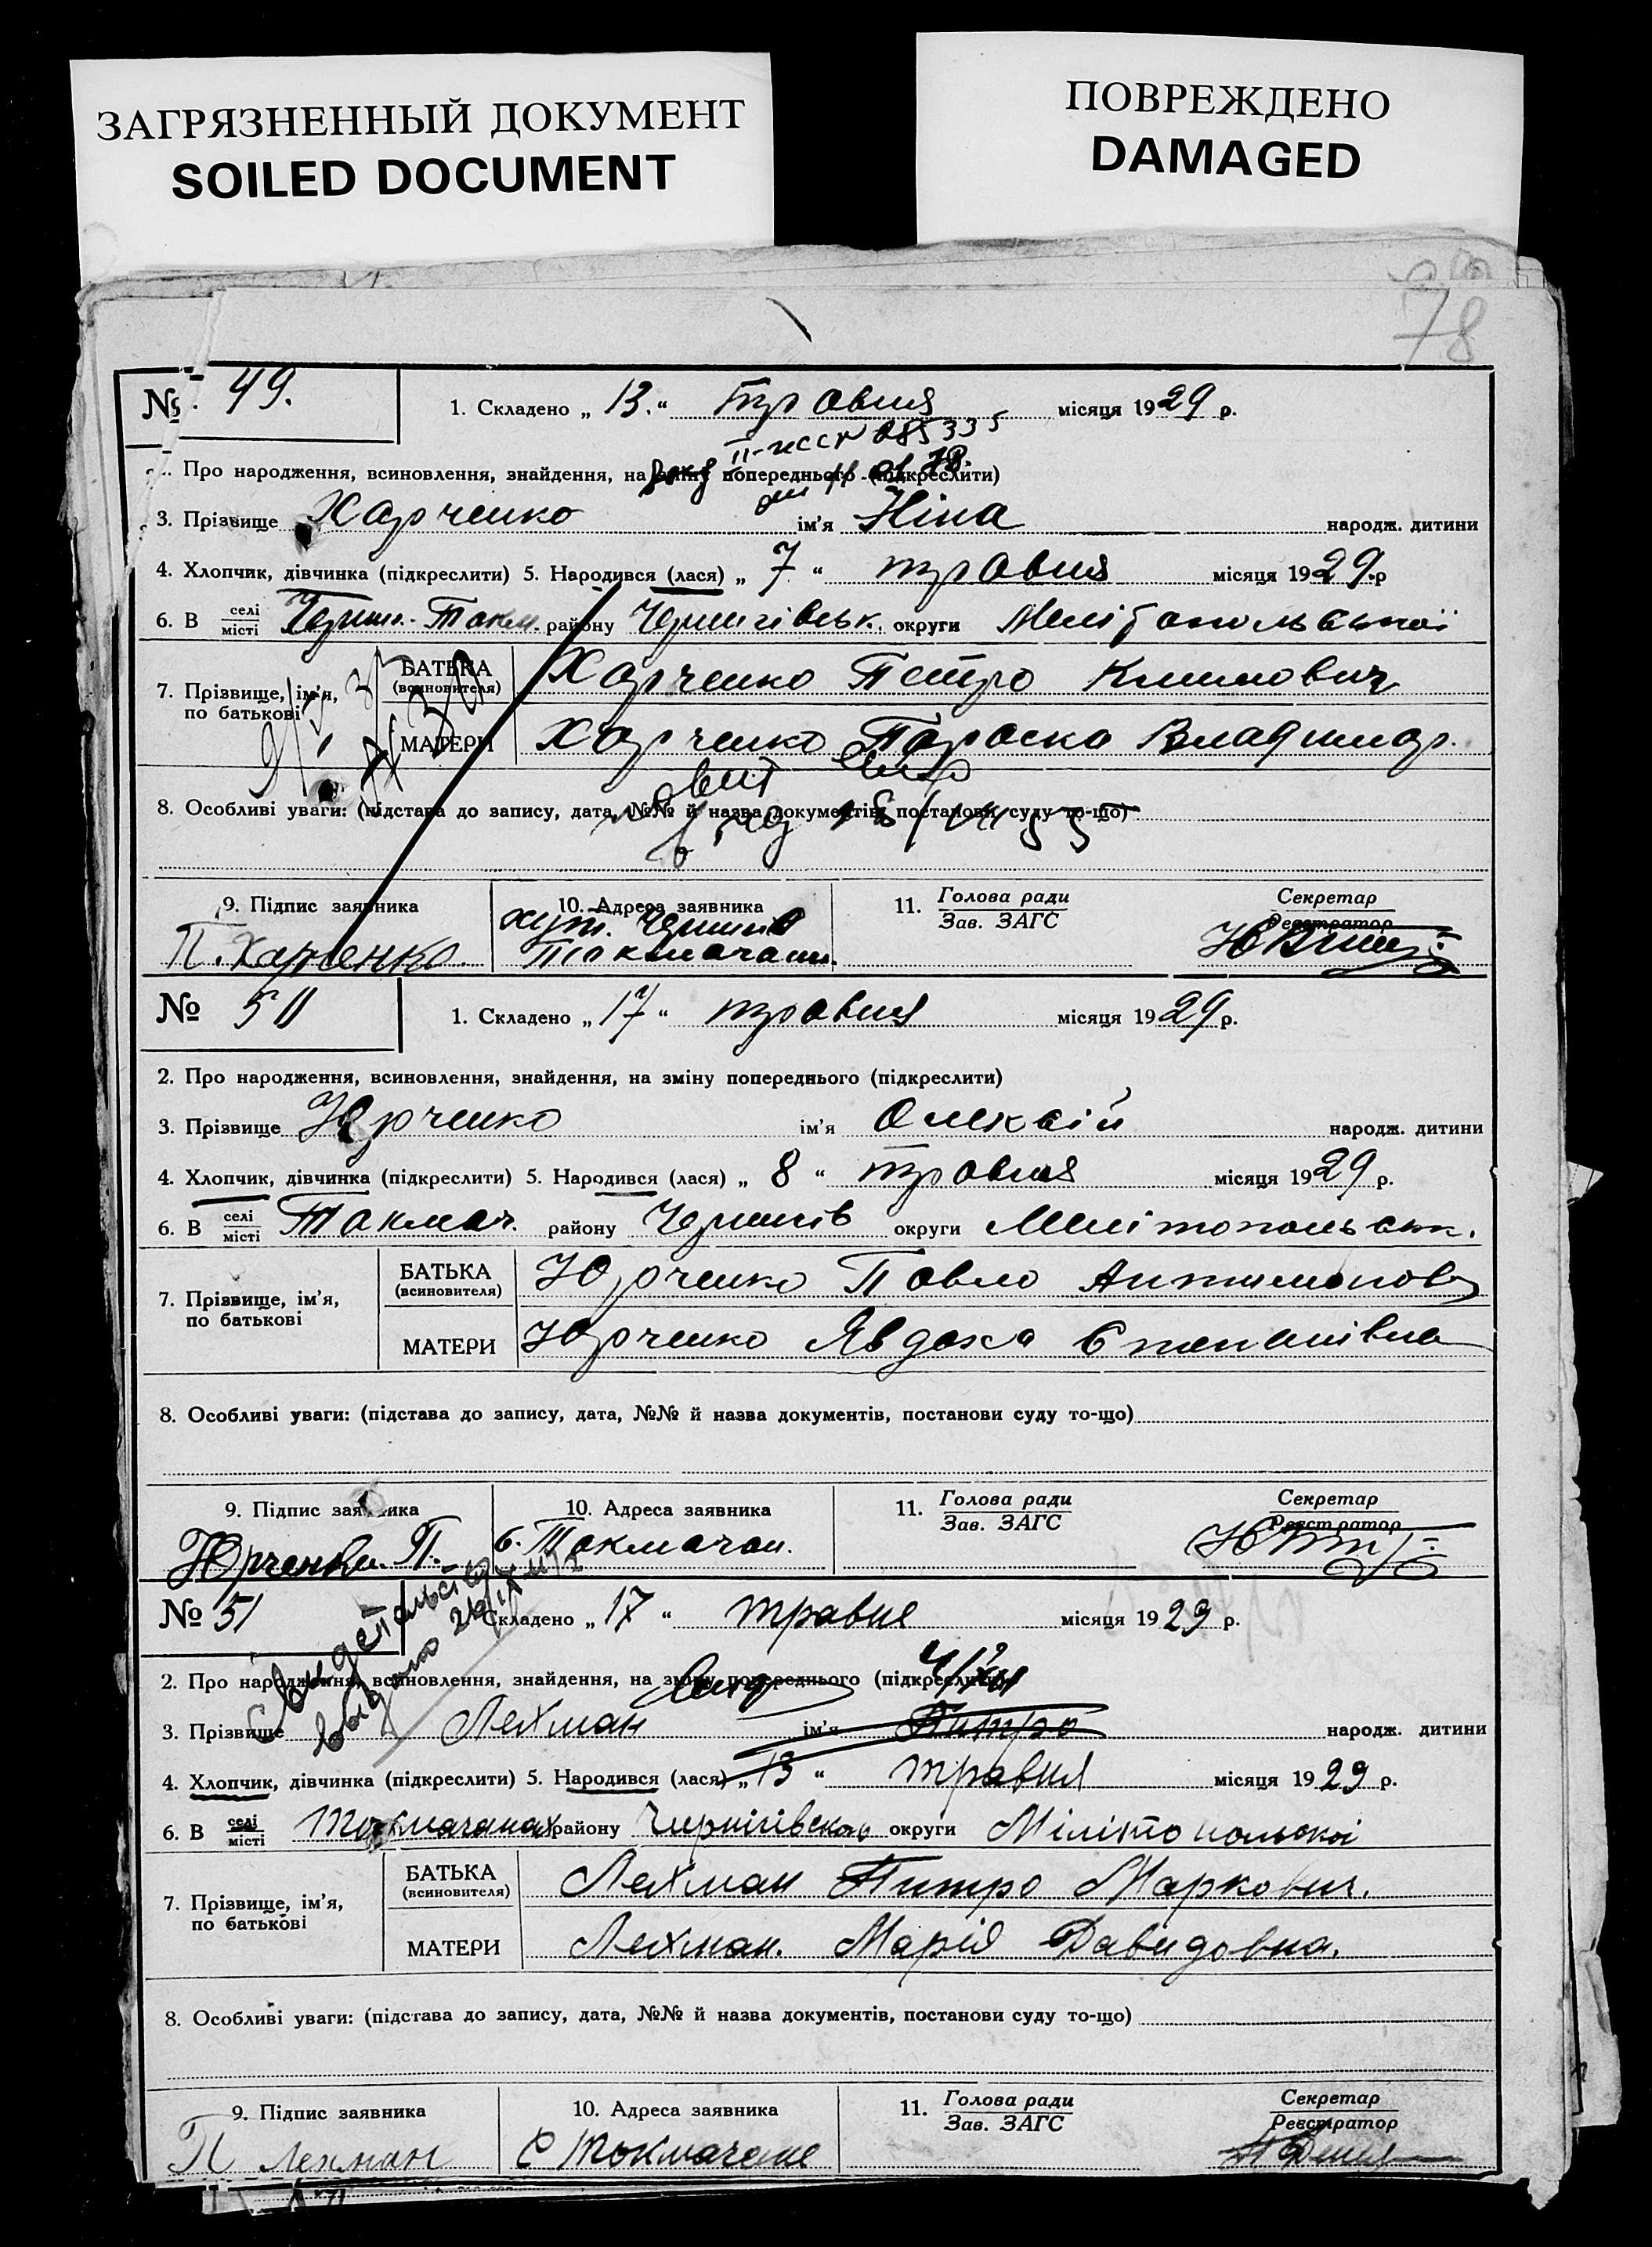 ЗАГРЯЗНЕННЫЙ ДОКУМЕНТ
SOILED DOCUMENT
ПОВРЕЖДЕНО
DAMAGED
78
№ 49.
1. Складено „ 13. “ травня місяця 1929 р.
ІІ-ЖССР 085335
Про народження, всиновлення, знайдення, на зміну попереднього (підкреслити)
3. Прізвище Харченко ім'я Ніна народж. дитини
4. Хлопчик, дівчинка (підкреслити) 5. Народився (лася) „ 7 “ травня місяця 1929 р
6. В селі місті Черниг.-Токм. району Чернигівськ. округи Мелітопольської
7. Прізвище, ім'я, по батькові
БАТЬКА (всиновителя) Харченко Петро Климович
МАТЕРИ Харченко Параска Владимир.
8. Особливі уваги: (підстава до запису, дата, №№ й назва документів, постанови суду то-що)
9. Підпис заявника
10. Адреса заявника
11. Голова ради
Зав. ЗАГС
Секретар
Реєстратор
П. Харченко
хут. Черниг
Токмачани.
№ 50
1. Складено „ 17 “ травня місяця 1929 р.
2. Про народження, всиновлення, знайдення, на зміну попереднього (підкреслити)
3. Прізвище Юрченко ім'я Олексій народж. дитини
4. Хлопчик, дівчинка (підкреслити) 5. Народився (лася) „ 8 “ травня місяця 1929 р.
6. В селі місті Токмач. району Чернигів округи Мелітопольськ.
7. Прізвище, ім'я, по батькові
БАТЬКА (всиновителя) Юрченко Павло Антимонов
МАТЕРИ Юрченко Явдоха Степанівна
8. Особливі уваги: (підстава до запису, дата, №№ й назва документів, постанови суду то-що)
9. Підпис заявника
10. Адреса заявника
11. Голова ради
Зав. ЗАГС
Секретар
Реєстратор
Юрченко. П.
с. Токмачан.
№ 51
Складено „ 17 “ травня місяця 1929 р.
Свидетельство
выдано
2. Про народження, всиновлення, знайдення, на зміну попереднього (підкреслити)
3. Прізвище Лехман ім'я Питро народж. дитини
4. Хлопчик, дівчинка (підкреслити) 5. Народився (лася) „ 13 “ травня місяця 1929 р.
6. В селі місті Токмачанах району Чирнігівсько округи Мілітопольскоі
7. Прізвище, ім'я, по батькові
БАТЬКА (всиновителя) Лехман Питро Маркович.
МАТЕРИ Лехман. Марія Давидовна.
8. Особливі уваги: (підстава до запису, дата, №№ й назва документів, постанови суду то-що)
9. Підпис заявника
10. Адреса заявника
11. Голова ради
Зав. ЗАГС
Секретар
Реєстратор
П Лехман
С Токмачане